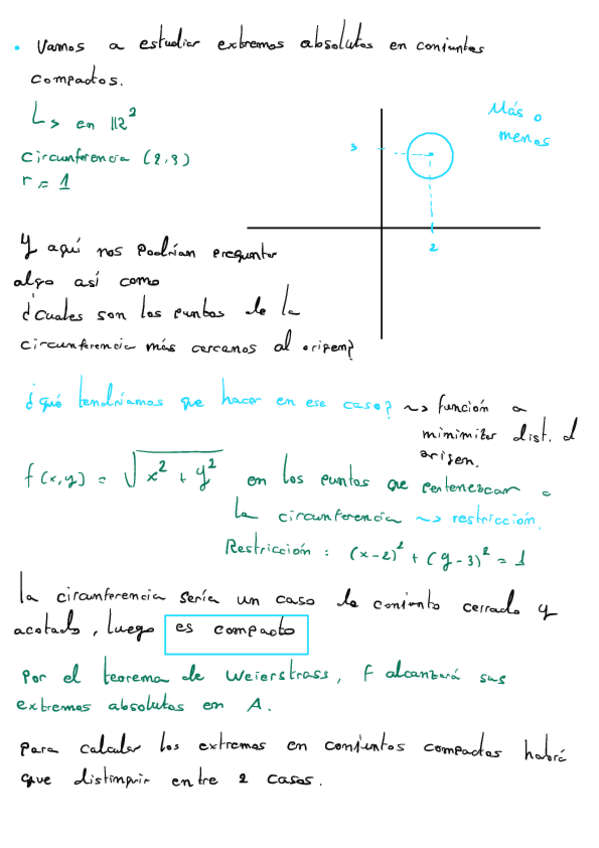 • Vamos a estudiar extremos absolutos en conjuntos
compactos.
↳ en ℝ²
circunferencia (2,3)
r = 1
Más o
menos
3
2
Y aquí nos podrían preguntar
algo así como
¿cuales son los puntos de la
circunferencia más cercanos al origen?
¿qué tendríamos que hacer en ese caso? ~> función a
minimizar dist. al
origen.
f(x,y) = √(x² + y²) en los puntos que pertenezcan a
la circunferencia ~> restricción.
Restricción : (x-2)² + (y-3)² = 1
La circunferencia sería un caso de conjunto cerrado y
acotado, luego es compacto
Por el teorema de Weierstrass, f alcanzará sus
extremos absolutos en A.
Para calcular los extremos en conjuntos compactos habrá
que distinguir entre 2 casos.